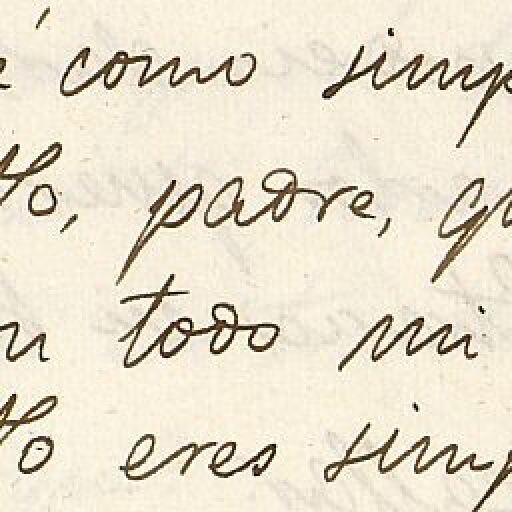 como simp
to, padre, qu
n todo mi
to eres simp